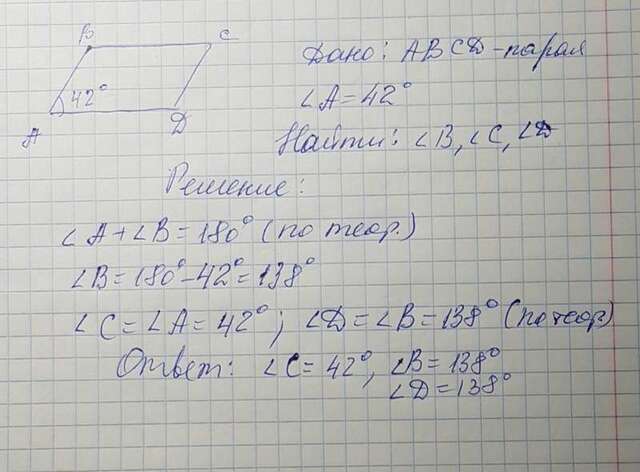 B C
42°
A D
Дано: ABCD - парал
∠A = 42°
Найти: ∠B, ∠C, ∠D
Решение:
∠A + ∠B = 180° (по теор.)
∠B = 180° - 42° = 138°
∠C = ∠A = 42°; ∠D = ∠B = 138° (по теор)
Ответ: ∠C = 42°, ∠B = 138°
∠D = 138°